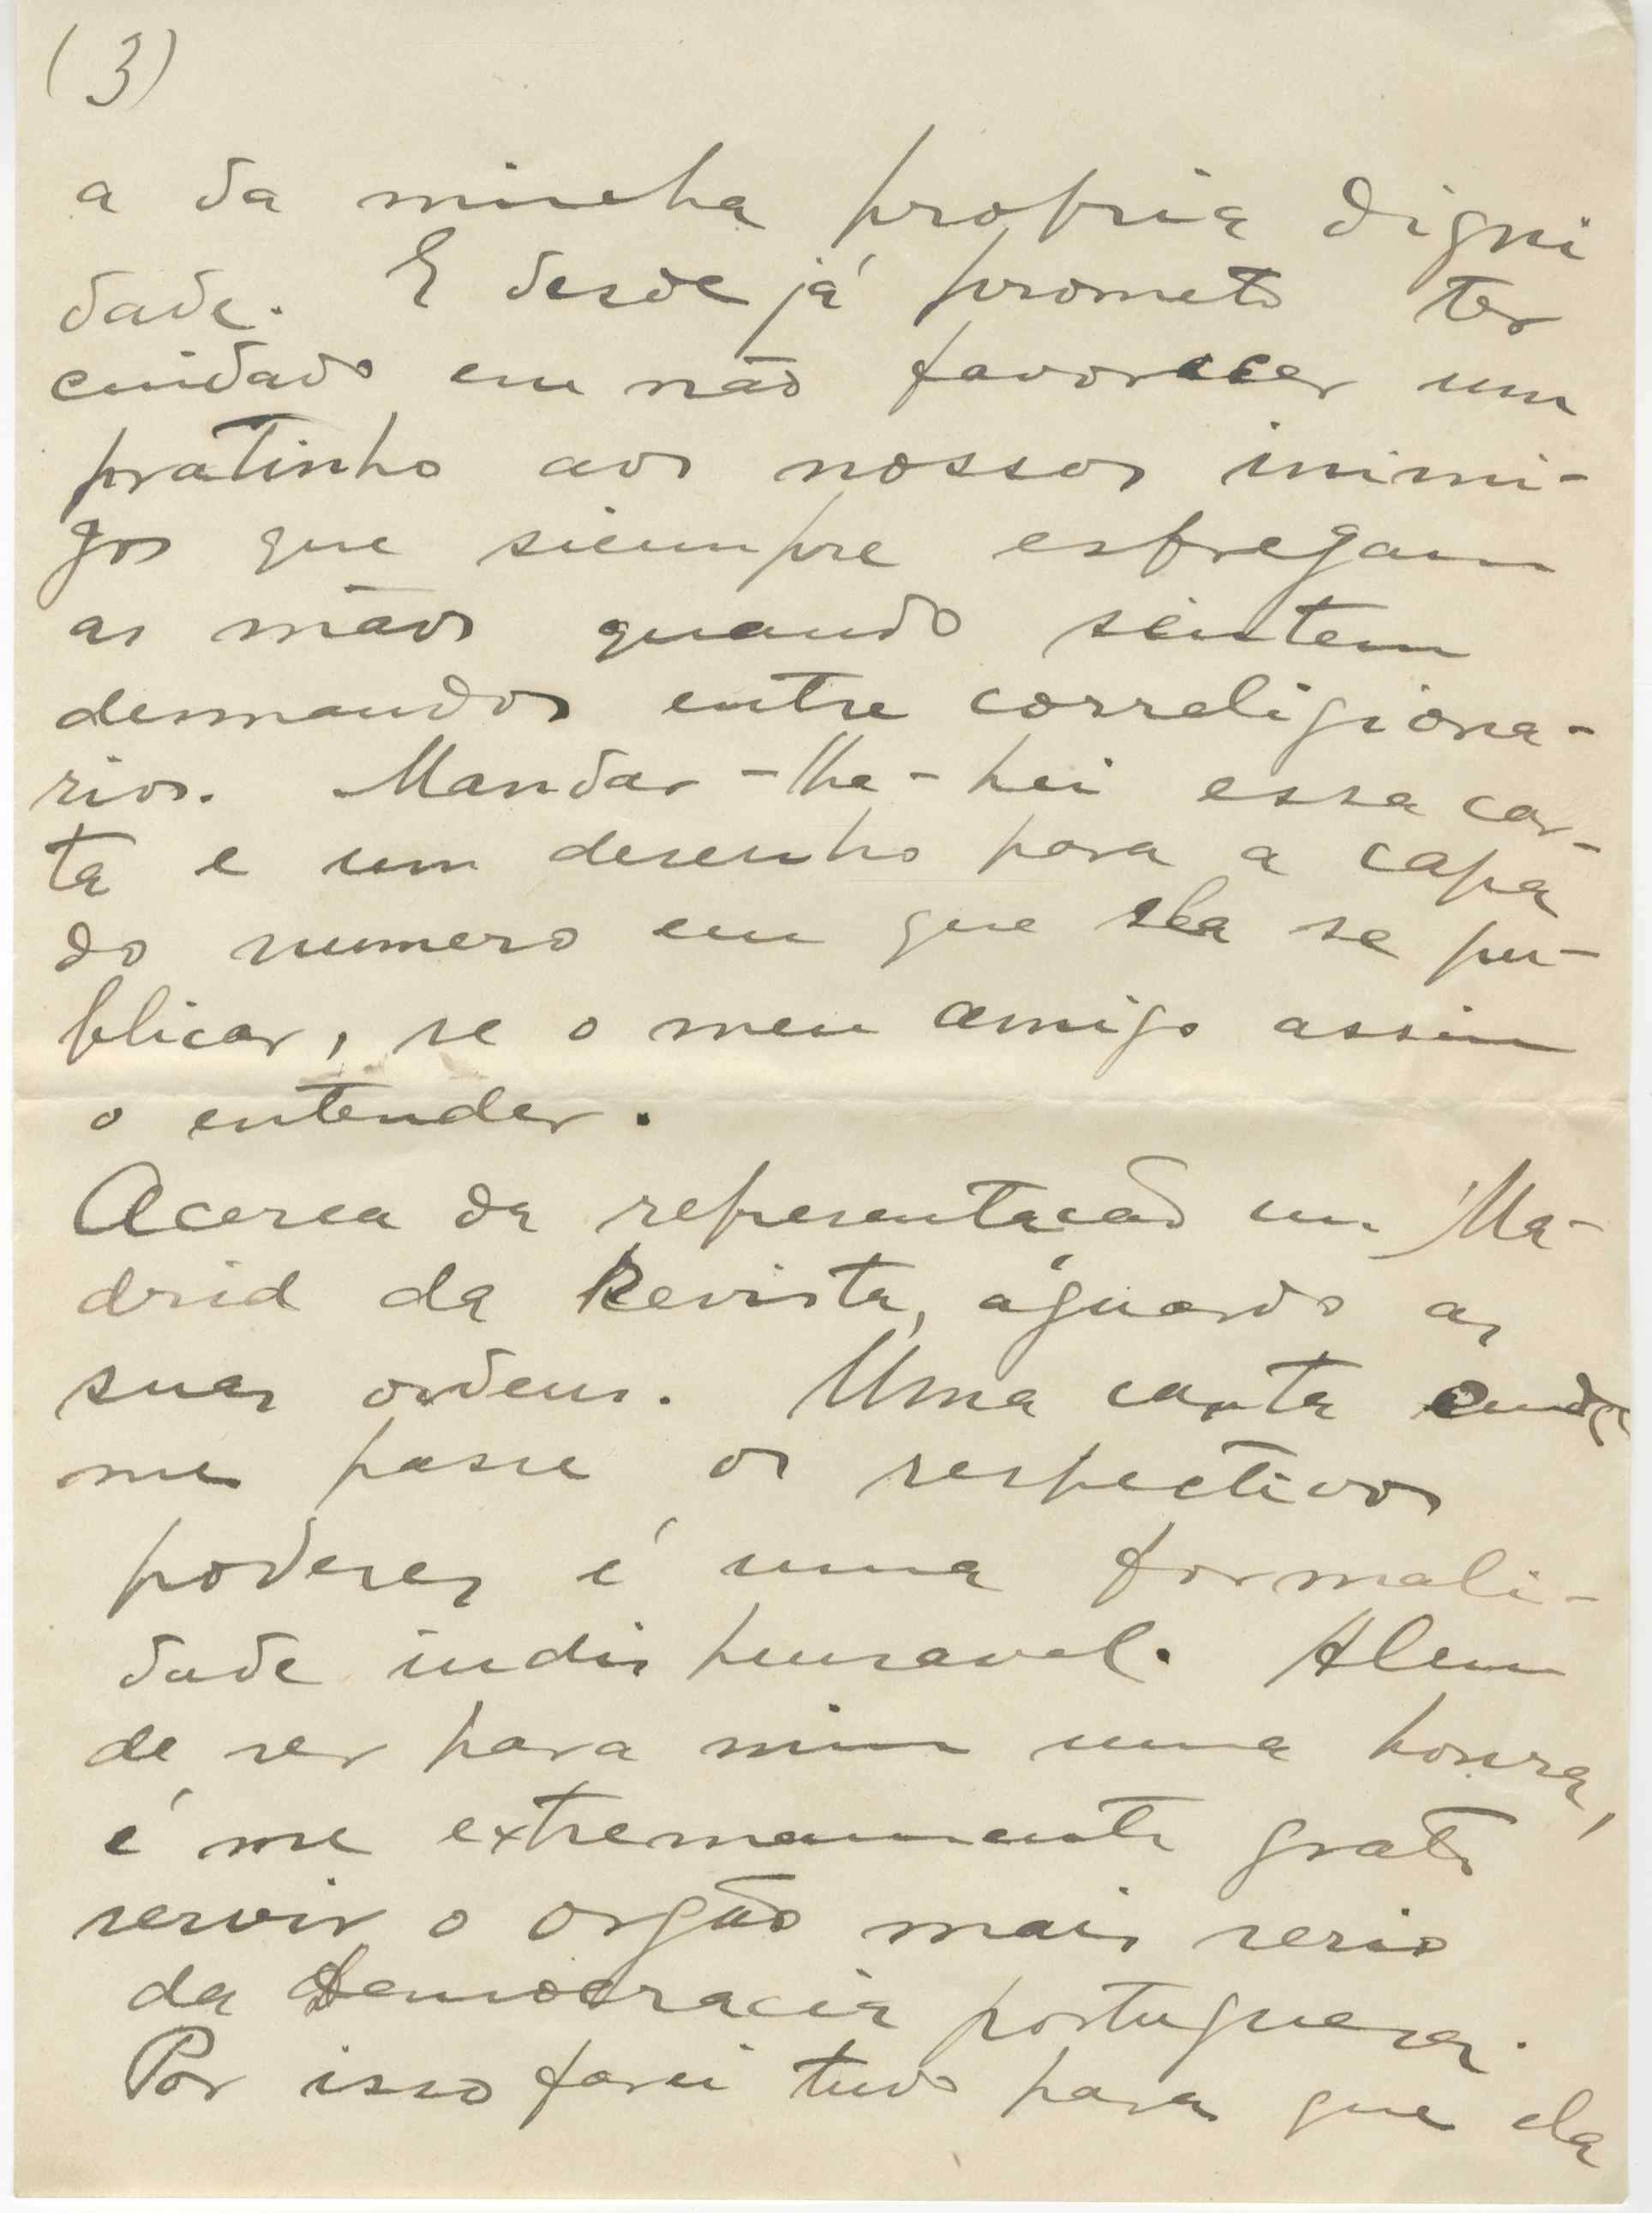 (3)
a da minha propria digni
dade. E desde já prometo ter
cuidado em não favorecer um
pratinho aos nossos inimi-
gos que siempre esfregam
as mãos quando sentem
desmandos entre correligiona-
rios. Mandar-lhe-hei essa car-
ta e um desenho para a capa
do numero em que ela se pu-
blicar, se o meu amigo assim
o entender.
Acerca da representacão em Ma-
drid da Revista, aguardo as
suas ordens. Uma carta onde
me passe os respectivos
poderes é uma formali-
dade indispensavel. Alem
de ser para mim uma honra,
é me extremamente grato
servir o orgão mais serio
da Democracia portuguesa.
Por isso farei tudo para que ela